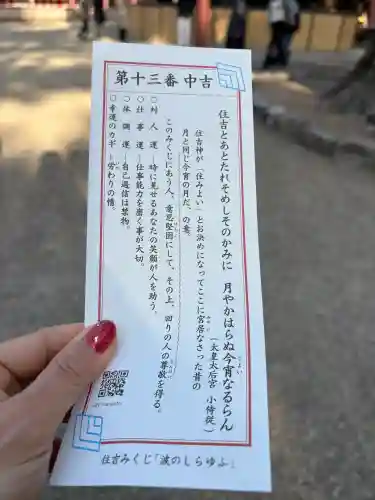 第十三番 中吉
住吉とあとたれそめしそのかみに 月やかはらぬ今宵なるらん
こよい
(太皇太后宮 小侍従)
住吉神が「住みよい」とお決めになってここに宮居なさった昔の
月と同じ今宵の月だ、の意。
このみくじにあう人、意思堅固にして、その上、回りの人の尊敬を得る。
○対人運―時に見せるあなたの笑顔が人を助う。
○仕事運―仕事能力を磨く事が大切。
○体調運―自己過信は禁物。
○幸運のカギ―労わりの情。
住吉みくじ「波のしらゆふ」